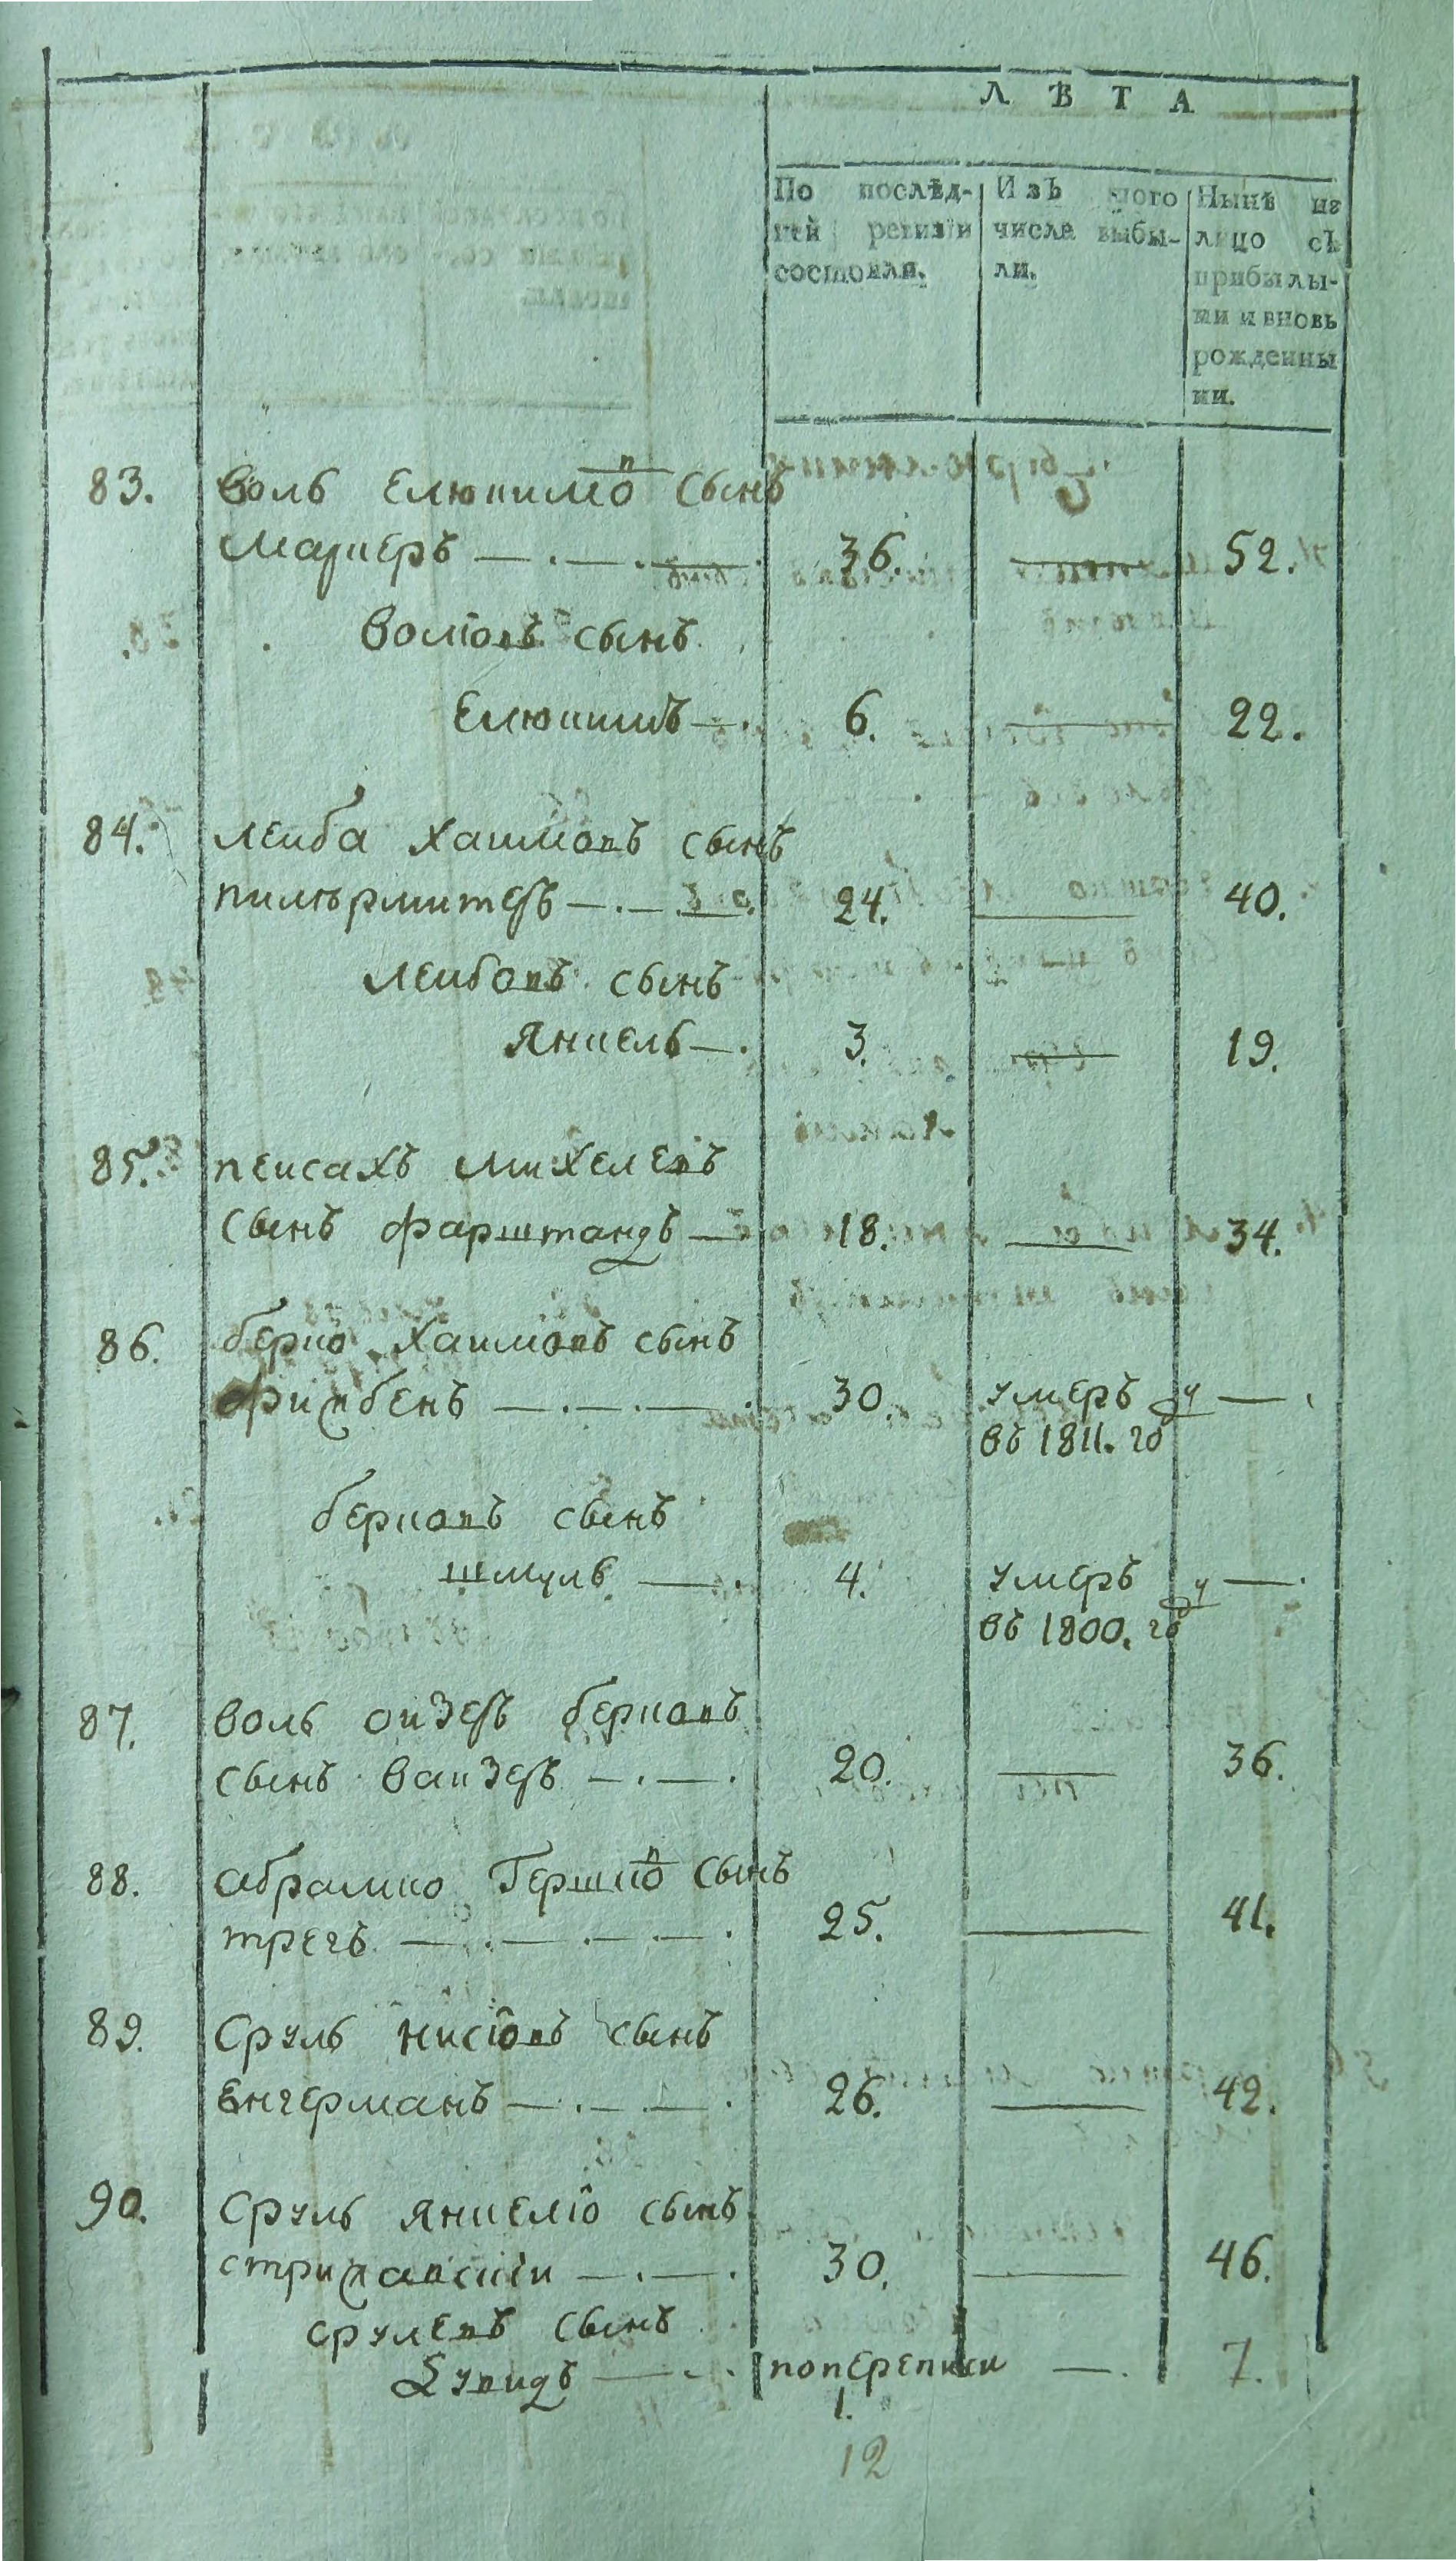 ЛѢТА
По послѣд-
ней ревизіи
состояли.
Изъ того
числа выбы-
ли.
Нынѣ на
лицо съ
прибылы-
ми и вновь
рожденны
ми.
83. Воль Елюкимов сынъ
Маркеръ — 36. — 52.
Волговъ сынъ
Елюкимъ — 6. — 22.
84. Леиба Хаимовъ сынъ
24. — 40.
Леибовъ сынъ
Янкель — 3. — 19.
85. Пеисахъ Михелевъ
сынъ Фарштандъ — 18. — 34.
86. Берко Хаимовъ сынъ
30. умеръ —
въ 1811. году
Берковъ сынъ
Шмуль — 4. умеръ —
въ 1800. году
87. Воль Оизеръ Берковъ
сынъ Ваизеръ — 20. — 36.
88. Абрамко Гершков сынъ
Трегъ — 25. — 41.
89. Сруль сынъ
Енгерманъ — 26. — 42.
90. Сруль Янкелiо сынъ
30. — 46.
Срулевъ сынъ
Дувидъ — поперепики — 7.
1.
12